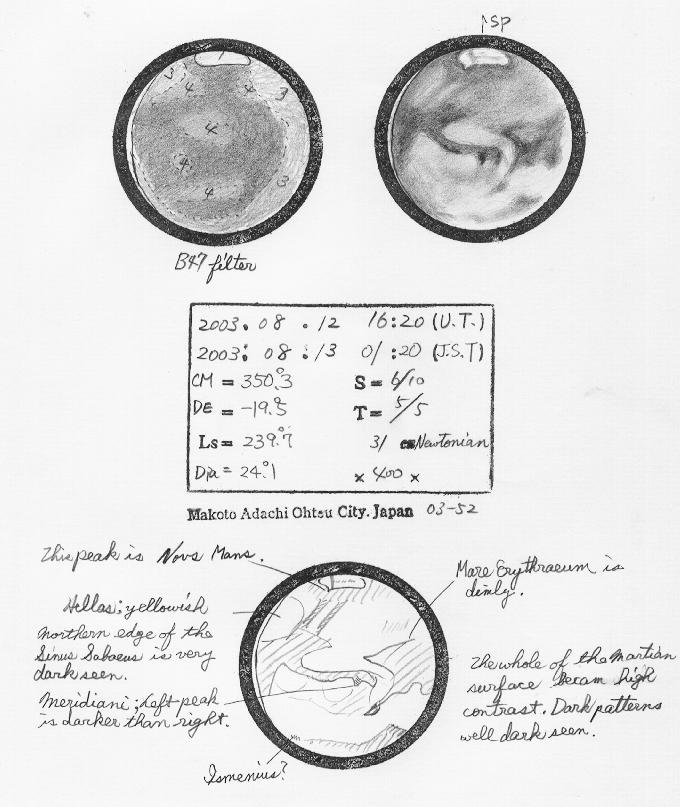 SP
1
3
4
3
3
4
4
4
3
B47 filter
2003. 08 . 12 16:20 (U.T.)
2003: 08 : 13 01 :20 (J.S.T)
CM = 350.°3 S = 6/10
DE = -19.°5 T = 5/5
Ls = 239.°7 31 cm Newtonian
Dia = 24.°1 × 400 ×
Makoto Adachi Ohtsu City. Japan 03-52
This peak is Novs Mans.
Mare Erythraeum is
dimly.
Hellas; yellowish
northern edge of the
Sinus Sabaeus is very
dark seen.
Meridiani; Left peak
is darker than right.
The whole of tha Martian
surface becam high
contrast. Dark patterns
well dark seen.
Ismenius?